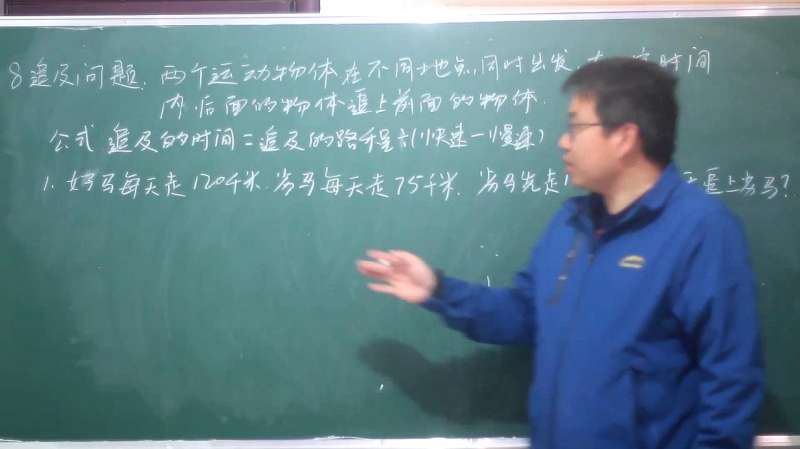 8 追及问题. 两个运动物体在不同地点同时出发 时间
内后面的物体追上前面的物体.
公式 追及的时间=追及的路程÷(快速-慢速)
1. 好马每天走120千米. 劣马每天走75千米. 劣马先走1 天追上劣马?